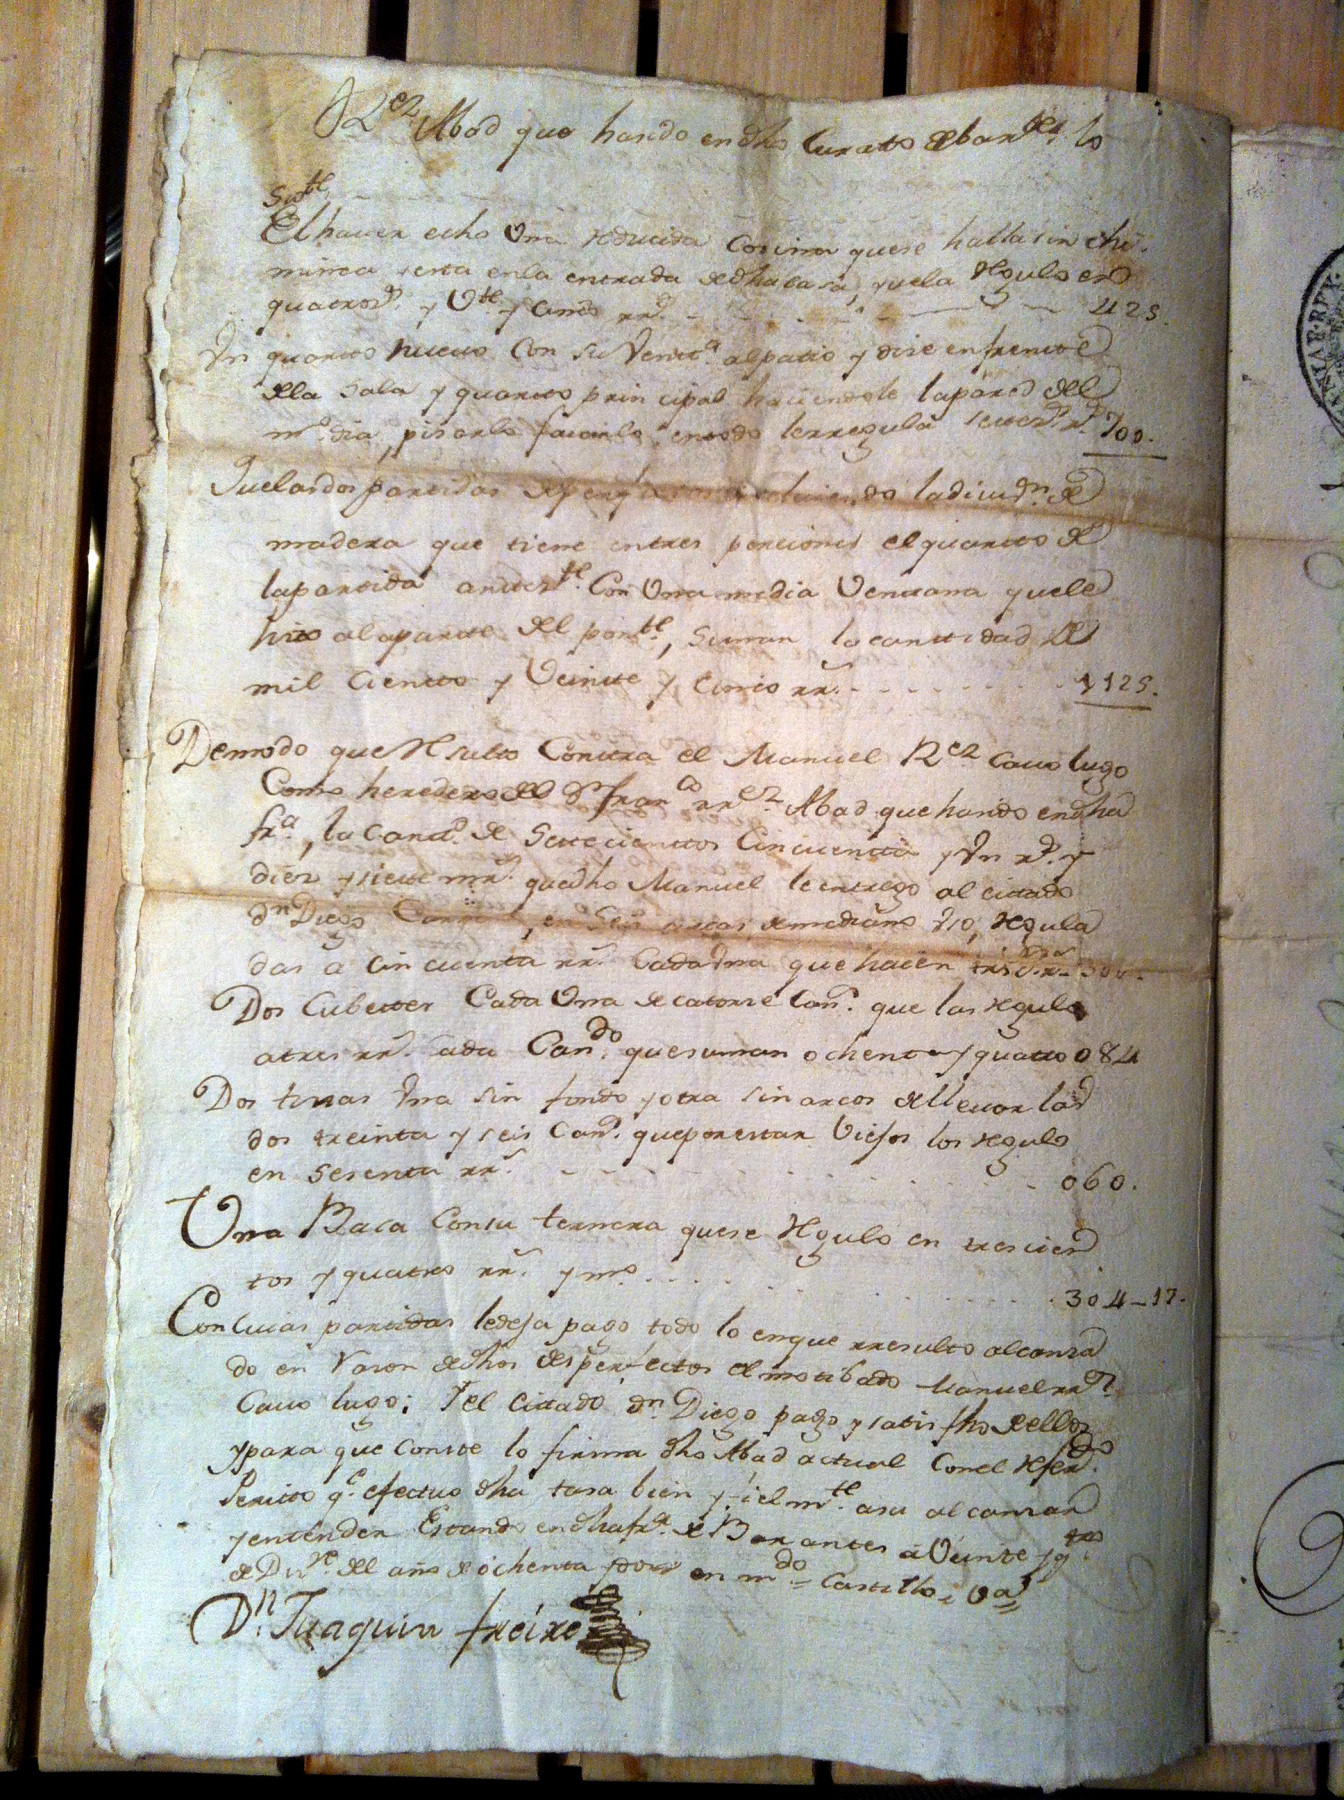 Rez Abad que ha sido en dho Curato de Bartes lo
Sigte
El haver echo Una reducida Cosina que se halla sin chi-
minea, esta en la entrada de dha Casa, y se la regulo en
quatros y Vte y Cinco rr. 425.
Un quarto nuevo Con su Ventta al patio y dise en frente de
della sala y quarto prinsipal haciendole la pared del
mo dia, pisarlo faiarlo en todo le rregula setects rs 700.
Y uelas dos partidas la divisn de
madera que tiene en tres porciones el quarto de
la partida antesrte Con Una media Ventana que le
hizo al aparte del ponte, suman la canttidad de
mil Ciento y Veinte y Cinco rr. 1125.
De modo que Resulto Contra el Manuel Rez Cavo lugo
Como heredero del Dn Franco rrez Abad que ha sido en dha
fra, la Cantd de Setecienttos Cincuentta y Un rs y
diez y siete mrs que dho Manuel le entrego al citado
dn Diego en Seis arcas de mediano Uso, regula
das a Cincuenta rr. Cada Una que hacen 300.
Dos Cubettes Cada Una de catorse Cans que las regulo
a tres rr. Cada Cando que suman ochenta y quatro 084
Dos tinas Una sin fondo y otra sin arcos de llevar las
dos treinta y seis Cans que por estar Viejos los regulo
en sesenta rr. 060.
Una Baca Con su ternera que se Regulo en trescien
tos y quatro rr. y mo 304-17.
Con Cuias partidas le deja pago todo lo en que rresulto alcansa
do en rason de dhos desperfectos el motibado Manuel rrz
Cavo lugo; Y el Citado dn Diego pago y satisfho de ellos
y para que Conste lo firma dho Abad actual Con el Referdo
Perito qe efectuo dha tasa bien y fielmte a su alcansar
y entender Estando en dha fra de Barantes a Veinte y qtro
de Dizre del año de ochenta y dos en mdo Castillo, Va
Dn Juaquin freire